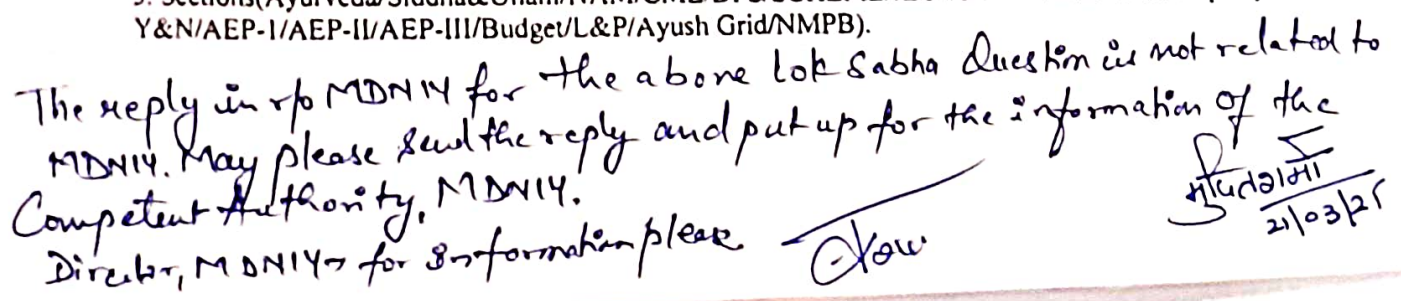 Y&N/AEP-I/AEP-II/AEP-III/Budget/L&P/Ayush Grid/NMPB).
The reply in r/o MDNIY for the above Lok Sabha Question is not related to
MDNIY. May please send the reply and put up for the information of the
Competent Authority, MDNIY.
Director, MDNIY → for Information please
21/03/25